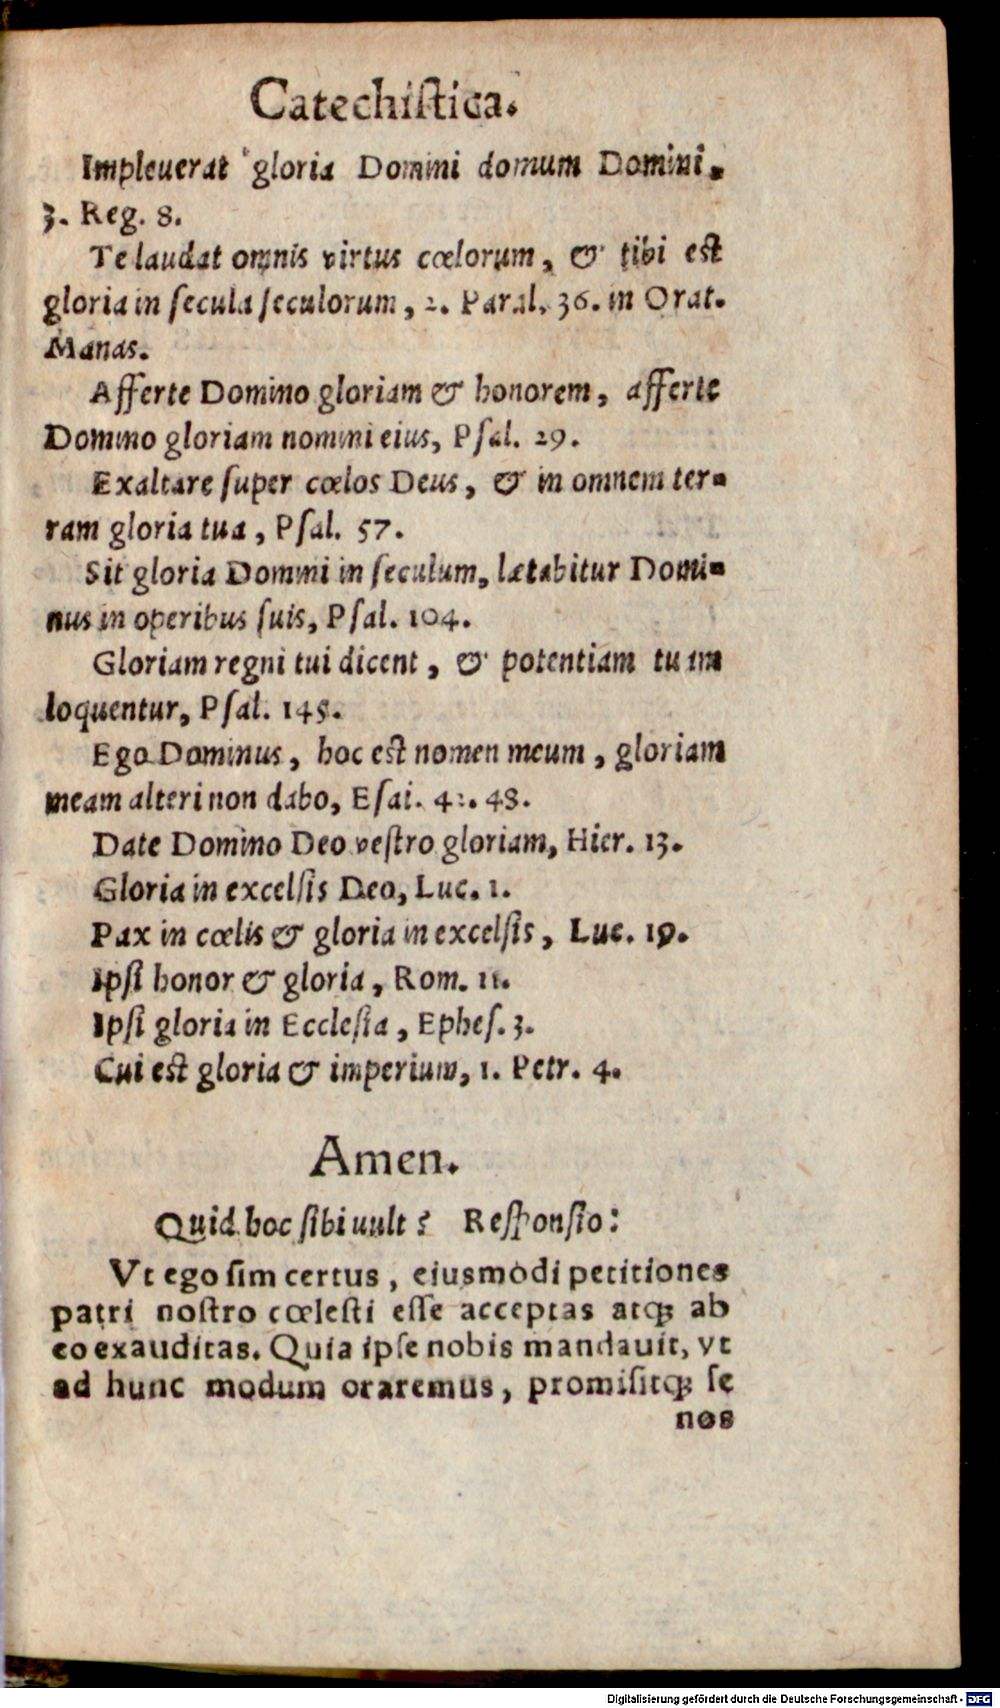 Catechiſtica.
Impleuerat gloria Domini domum Domini.
3. Reg. 8.
Te laudat omnis virtus cœlorum, & tibi est
gloria in ſecula ſeculorum, 2. Paral. 36. in Orat.
Manas.
Afferte Domino gloriam & honorem, afferte
Domino gloriam nomini eius, Pſal. 29.
Exaltare ſuper cœlos Deus, & in omnem ter-
ram gloria tua, Pſal. 57.
Sit gloria Domini in ſeculum, lætabitur Domi-
nus in operibus ſuis, Pſal. 104.
Gloriam regni tui dicent, & potentiam tuam
loquentur, Pſal. 145.
Ego Dominus, hoc eſt nomen meum, gloriam
meam alteri non dabo, Eſai. 42. 48.
Date Domino Deo veſtro gloriam, Hier. 13.
Gloria in excelſis Deo, Luc. 1.
Pax in cœlis & gloria in excelſis, Luc. 19.
Ipſi honor & gloria, Rom. 11.
Ipſi gloria in Eccleſia, Epheſ. 3.
Cui eſt gloria & imperium, 1. Petr. 4.
Amen.
Quid hoc ſibi uult? Reſponſio:
Vt ego ſim certus, eiusmodi petitiones
patri noſtro cœleſti eſſe acceptas atq; ab
eo exauditas. Quia ipſe nobis mandauit, vt
ad hunc modum oraremus, promiſitq; ſe
nos
Digitalisierung gefördert durch die Deutsche Forschungsgemeinschaft - DFG